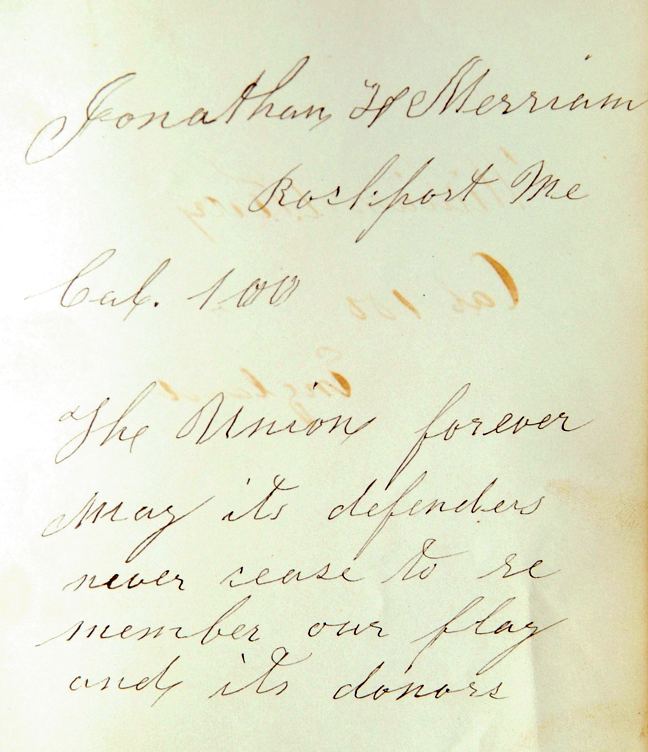 Jonathan H Merriam
Rockport Me
Cal. 100
The Union forever
May its defenders
never cease to re
member our flag
and its donors